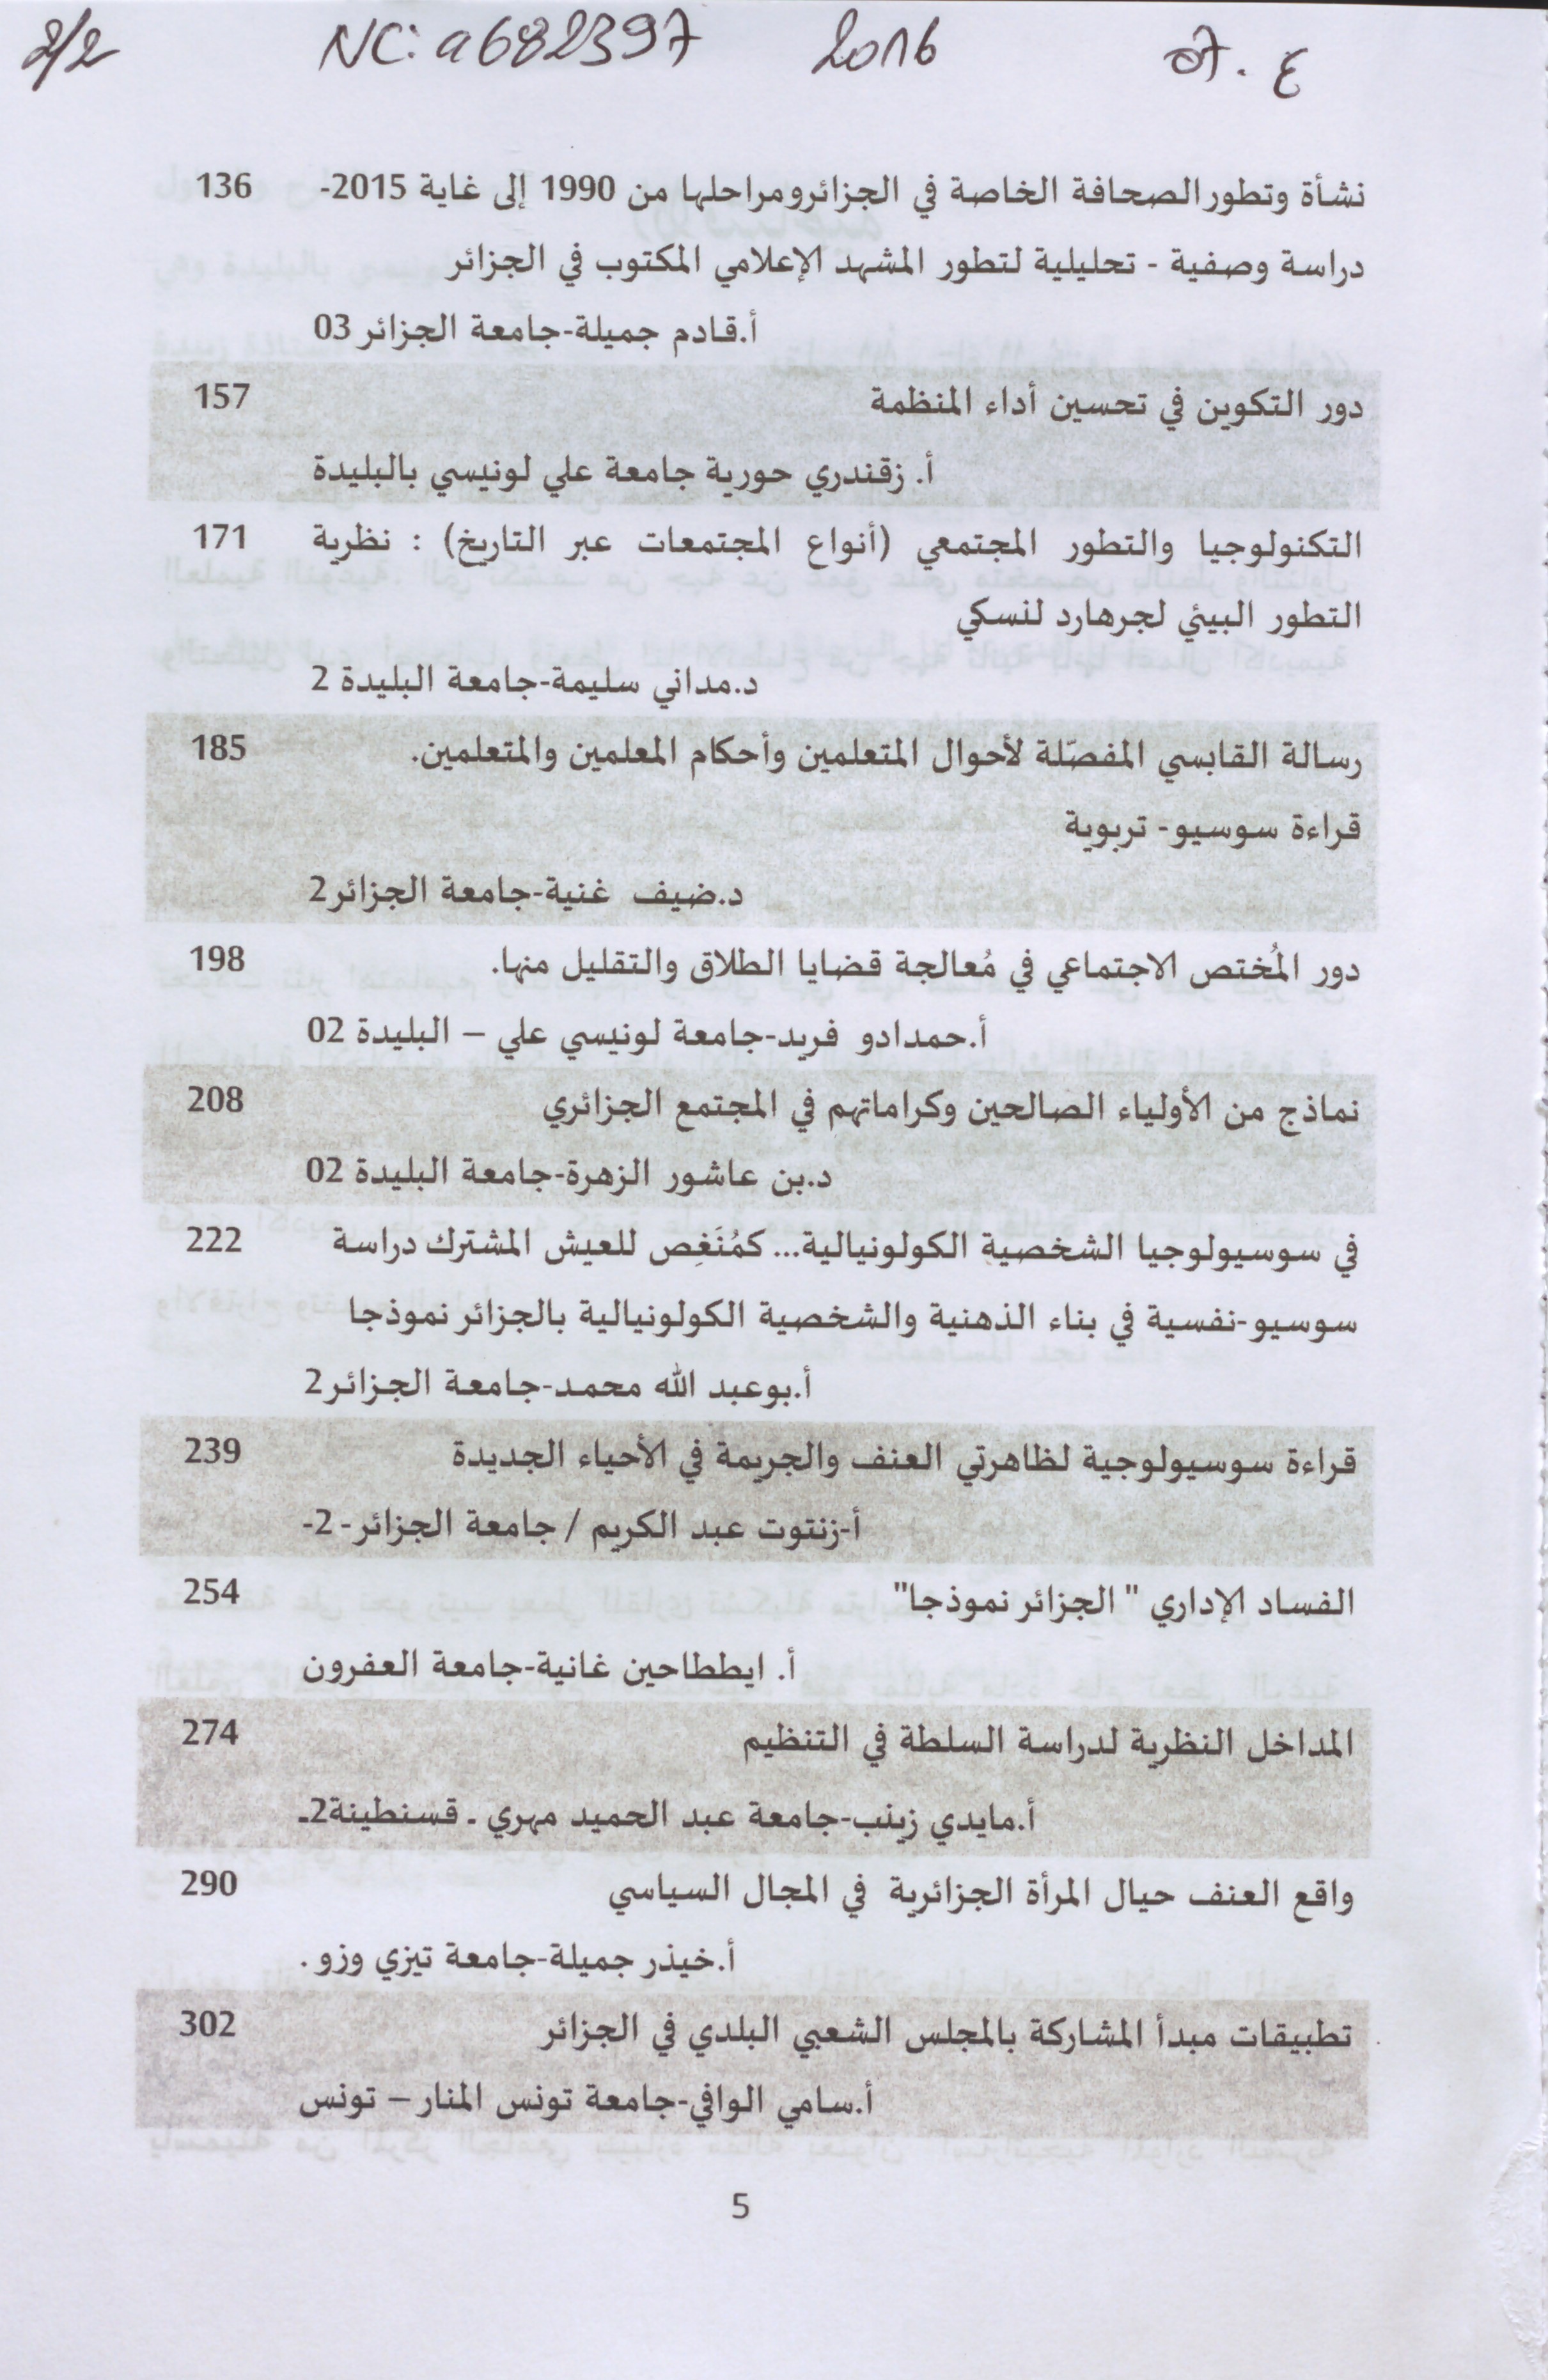 2/2 NC: a682397 2016 ع .
نشأة وتطور الصحافة الخاصة في الجزائر ومراحلها من 1990 إلى غاية 2015- 136
دراسة وصفية - تحليلية لتطور المشهد الإعلامي المكتوب في الجزائر
أ.قادم جميلة-جامعة الجزائر 03
دور التكوين في تحسين أداء المنظمة 157
أ. زقندري حورية جامعة علي لونيسي بالبليدة
التكنولوجيا والتطور المجتمعي (أنواع المجتمعات عبر التاريخ) : نظرية 171
التطور البيئي لجرهارد لنسكي
د.مداني سليمة-جامعة البليدة 2
رسالة القابسي المفصّلة لأحوال المتعلمين وأحكام المعلمين والمتعلمين. 185
قراءة سوسيو- تربوية
د.ضيف غنية-جامعة الجزائر2
دور المُختص الاجتماعي في مُعالجة قضايا الطلاق والتقليل منها. 198
أ.حمدادو فريد-جامعة لونيسي علي – البليدة 02
نماذج من الأولياء الصالحين وكراماتهم في المجتمع الجزائري 208
د.بن عاشور الزهرة-جامعة البليدة 02
في سوسيولوجيا الشخصية الكولونيالية... كمُنَغِص للعيش المشترك دراسة 222
سوسيو-نفسية في بناء الذهنية والشخصية الكولونيالية بالجزائر نموذجا
أ.بوعبد الله محمد-جامعة الجزائر2
قراءة سوسيولوجية لظاهرتي العنف والجريمة في الأحياء الجديدة 239
أ-زنتوت عبد الكريم / جامعة الجزائر- 2-
الفساد الإداري " الجزائر نموذجا" 254
أ. ايططاحين غانية-جامعة العفرون
المداخل النظرية لدراسة السلطة في التنظيم 274
أ.مايدي زينب-جامعة عبد الحميد مهري ـ قسنطينة2ـ
واقع العنف حيال المرأة الجزائرية في المجال السياسي 290
أ.خيذر جميلة-جامعة تيزي وزو .
تطبيقات مبدأ المشاركة بالمجلس الشعبي البلدي في الجزائر 302
أ.سامي الوافي-جامعة تونس المنار – تونس
5